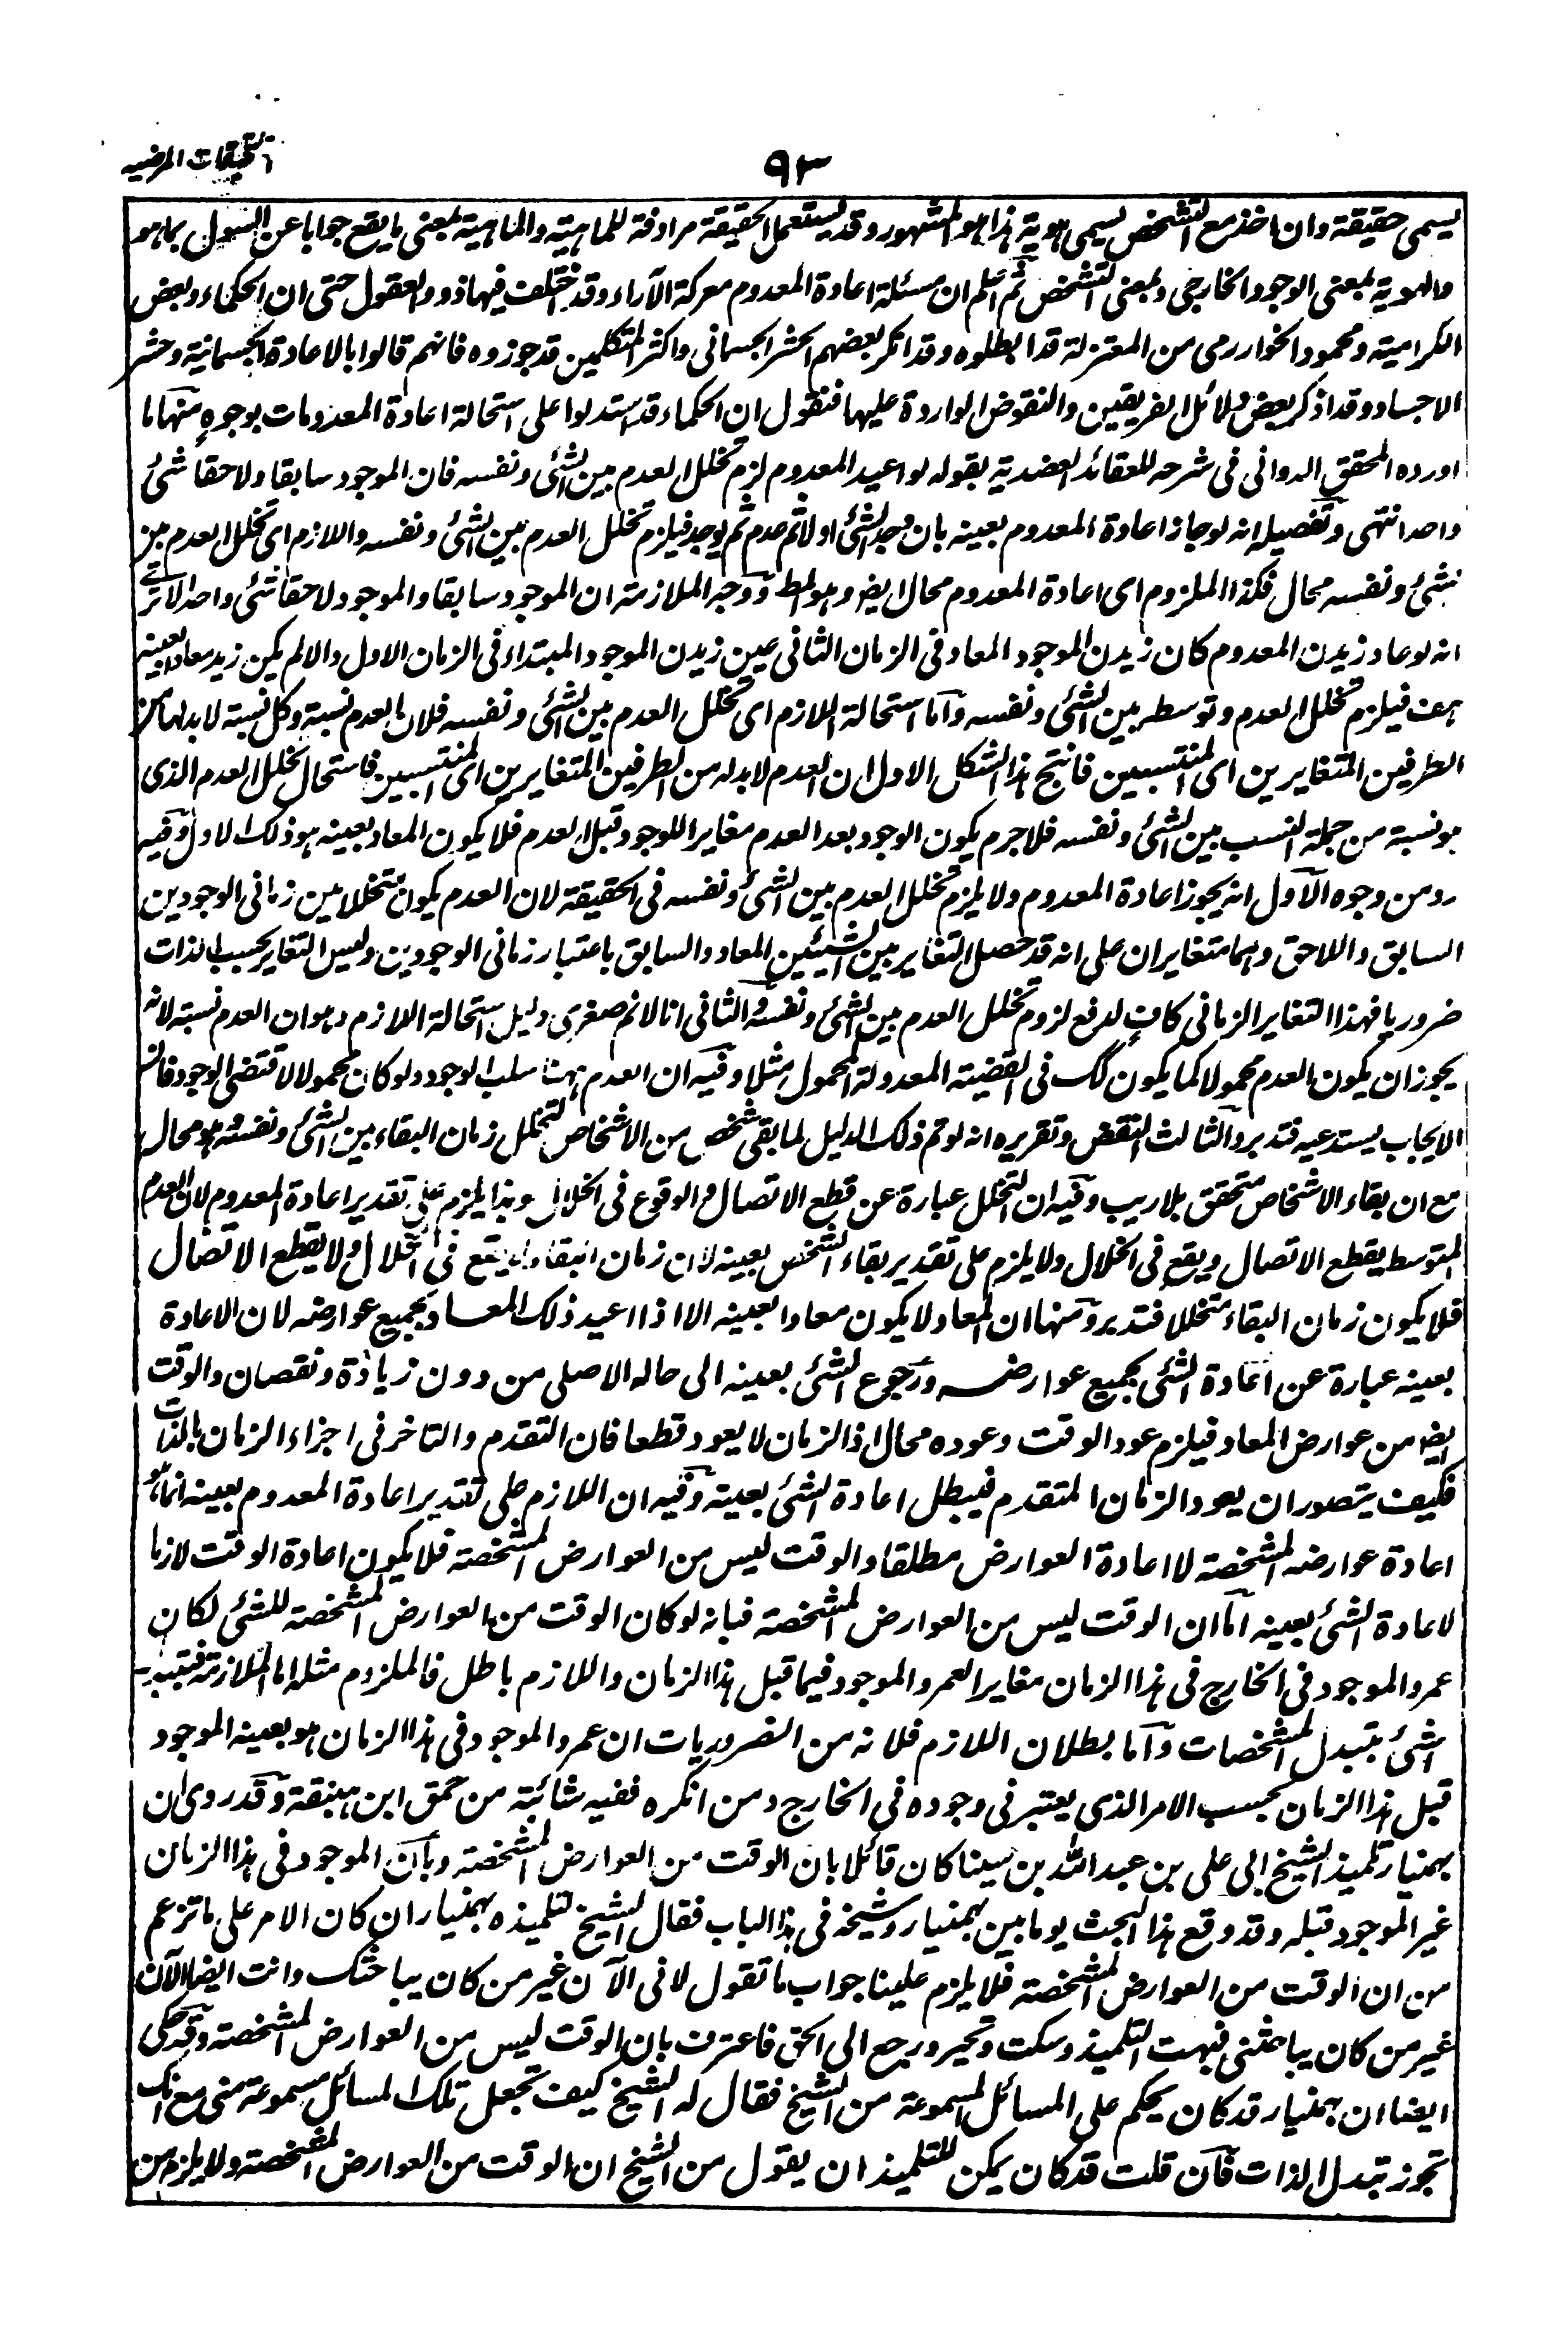 التحقيقات المرضيه
٩٣
يسمى حقيقة وان اخذ مع التشخص يسمى هوية هذا هو المشهور وقد يستعمل الحقيقة مرادفة للماهية والماهية بمعنى ما يقع جوابا عن السئول بما هو
والهوية بمعنى الوجود الخارجى وبمعنى التشخص ثم اعلم ان مسئلة اعادة المعدوم معركة الآراء وقد اختلف فيها ذوو العقول حتى ان الحكماء وبعض
الكرامية ومحمود الخوارزمى من المعتزلة قد ابطلوه وقد انكر بعضهم الحشر الجسمانى واكثر المتكلمين قد جوزوه فانهم قالوا بالاعادة الجسمانية وحشر
الاجساد وقد اذكر بعض دلائل الفريقين والنقوض الواردة عليها فنقول ان الحكماء قد استدلوا على استحالة اعادة المعدومات بوجوه منها ما
اورده المحقق الدوانى فى شرحه للعقائد العضدية بقوله لو اعيد المعدوم لزم تخلل العدم بين الشئ ونفسه فان الموجود سابقا ولاحقا شئ
واحد انتهى وتفصيله انه لو جاز اعادة المعدوم بعينه بان وجد الشئ اولا ثم عدم ثم يوجد فيلزم تخلل العدم بين الشئ ونفسه واللازم اى تخلل العدم بين
الشئ ونفسه محال فكذا الملزوم اى اعادة المعدوم محال ايض وهو المط ووجه الملازمة ان الموجود سابقا والموجود لاحقا شئ واحد الا ترى
انه لو عاد زيدن المعدوم كان زيدن الموجود المعاد فى الزمان الثانى عين زيدن الموجود المبتداء فى الزمان الاول والا لم يكن زيد معادا بعينه
هف فيلزم تخلل العدم وتوسطه بين الشئ ونفسه واما استحالة اللازم اى تخلل العدم بين الشئ ونفسه فلان العدم نسبة وكل نسبة لا بد لها من
الطرفين المتغايرين اى المنتسبين فانتج هذا الشكل الاول ان العدم لا بد له من الطرفين المتغايرين اى المنتسبين فاستحال تخلل العدم الذى
هو نسبة من جملة النسب بين الشئ ونفسه فلا جرم يكون الوجود بعد العدم مغايرا للوجود قبل العدم فلا يكون المعاد بعينه هو ذلك الاول وفيه
رد من وجوه الاول انه يجوز اعادة المعدوم ولا يلزم تخلل العدم بين الشئ ونفسه فى الحقيقة لان العدم يكون متخللا بين زمانى الوجودين
السابق واللاحق وهما متغايران على انه قد حصل التغاير بين الشيئين المعاد والسابق باعتبار زمانى الوجودين وليس التغاير بحسب الذات
ضروريا فهذا التغاير الزمانى كاف لدفع لزوم تخلل العدم بين الشئ ونفسه والثانى انا لا نم صغرى دليل استحالة اللازم وهو ان العدم نسبة لانه
يجوز ان يكون العدم محمولا كما يكون كك فى القضية المعدولة المحمول مثلا وفيه ان العدم ههنا سلب الوجود ولو كان محمولا لاقتضى الوجود فان
الايجاب يستدعيه فتدبر والثالث النقض وتقريره انه لو تم ذلك الدليل لما بقى شخص من الاشخاص لتخلل زمان البقاء بين الشئ ونفسه وهو محال
مع ان بقاء الاشخاص متحقق بلا ريب وفيه ان التخلل عبارة عن قطع الاتصال والوقوع فى الخلال وهذا يلزم على تقدير اعادة المعدوم لان العدم
المتوسط يقطع الاتصال ويقع فى الخلال ولا يلزم على تقدير بقاء الشخص بعينه لان زمان البقاء لا يقع فى الخلال ولا يقطع الاتصال
فلا يكون زمان البقاء متخللا فتدبر ومنها ان المعاد لا يكون معادا بعينه الا اذا اعيد ذلك المعاد بجميع عوارضه لان الاعادة
بعينه عبارة عن اعادة الشئ بجميع عوارضه ورجوع الشئ بعينه الى حاله الاصلى من دون زيادة ونقصان والوقت
ايض من عوارض المعاد فيلزم عود الوقت وعوده محال اذ الزمان لا يعود قطعا فان التقدم والتاخر فى اجزاء الزمان بالذات
فكيف يتصور ان يعود الزمان المتقدم فيبطل اعادة الشئ بعينه وفيه ان اللازم على تقدير اعادة المعدوم بعينه انما هو
اعادة عوارضه المشخصة لا اعادة العوارض مطلقا والوقت ليس من العوارض المشخصة فلا يكون اعادة الوقت لازما
لاعادة الشئ بعينه اما ان الوقت ليس من العوارض المشخصة فبانه لو كان الوقت من العوارض المشخصة للشئ لكان
عمرو الموجود فى الخارج فى هذا الزمان مغايرا لعمرو الموجود فيما قبل هذا الزمان واللازم باطل فالملزوم مثله اما الملازمة فبتبدل
الشئ بتبدل المشخصات واما بطلان اللازم فلانه من الضروريات ان عمرو الموجود فى هذا الزمان هو بعينه الموجود
قبل هذا الزمان بحسب الامر الذى يعتبر فى وجوده فى الخارج ومن انكره ففيه شائبة من حمق ابن هبنقة وقد روى ان
بهمنيار تلميذ الشيخ ابى على بن عبد الله بن سينا كان قائلا بان الوقت من العوارض المشخصة وبان الموجود فى هذا الزمان
غير الموجود قبله وقد وقع هذا البحث يوما بين بهمنيار وشيخه فى هذا الباب فقال الشيخ لتلميذه بهمنيار ان كان الامر على ما تزعم
من ان الوقت من العوارض المشخصة فلا يلزم علينا جواب ما تقول لانى الآن غير من كان يباحثك وانت ايضا الآن
غير من كان يباحثنى فبهت التلميذ وسكت وتحير ورجع الى الحق فاعترف بان الوقت ليس من العوارض المشخصة وقد حكى
ايضا ان بهمنيار قد كان يحكم على المسائل المسموعة من الشيخ فقال له الشيخ كيف تجعل تلك المسائل مسموعة منى مع انك
تجوز تبدل الذات فان قلت قد كان يمكن للتلميذ ان يقول من الشيخ ان الوقت من العوارض المشخصة ولا يلزم من